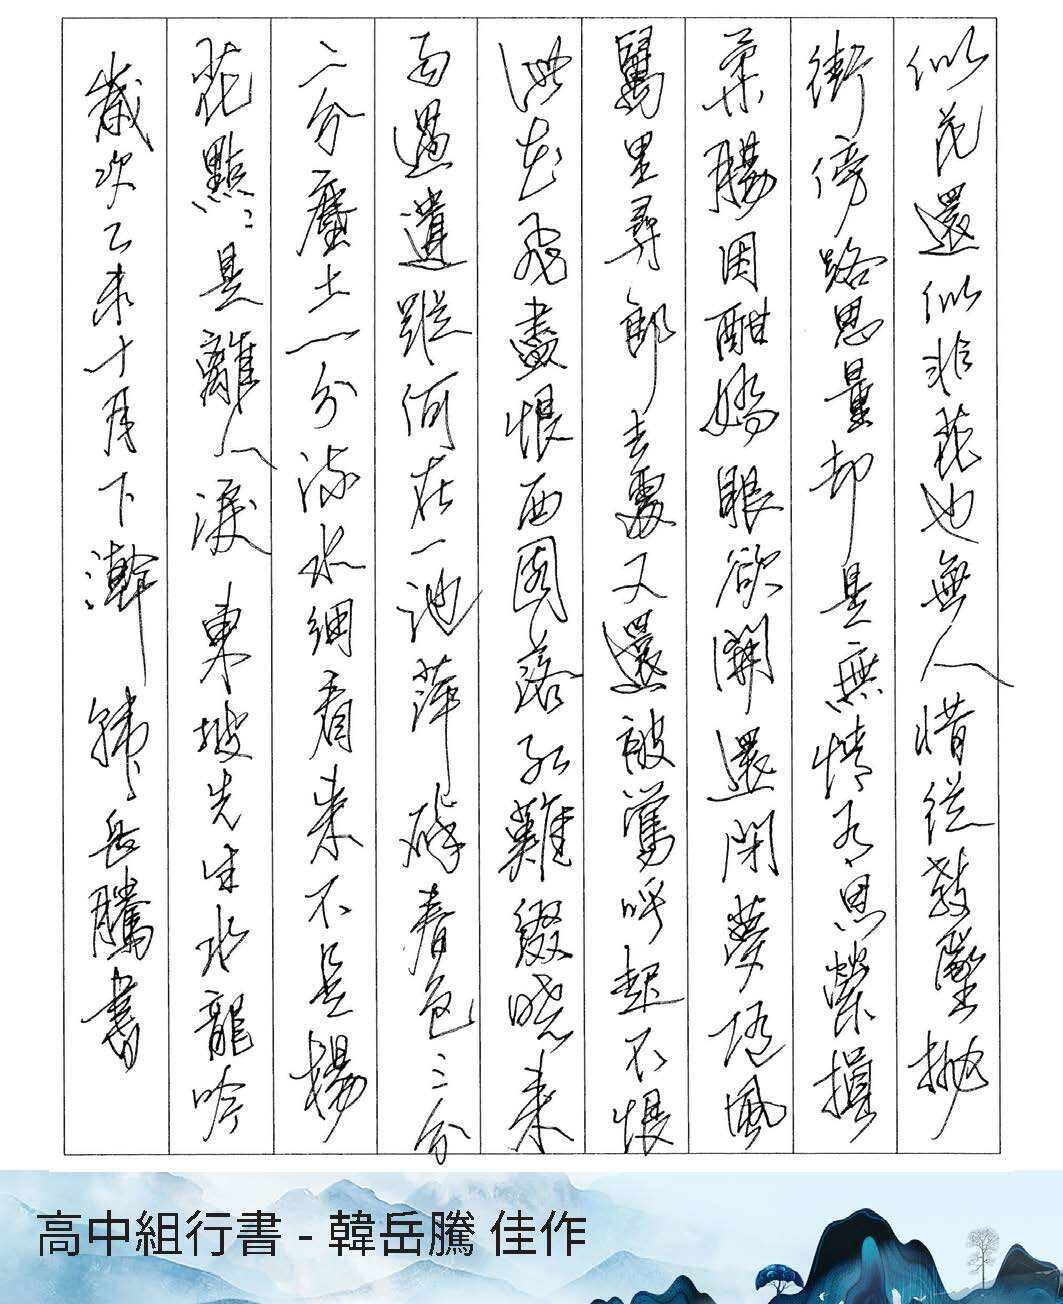 似花還似非花也無人惜從教墜拋
街傍路思量却是無情有思縈損
柔腸困酣嬌眼欲開還閉夢隨風
萬里尋郎去處又還被鶯呼起不恨
此花飛盡恨西園落紅難綴曉來
雨過遺蹤何在一池萍碎春色三分
二分塵土一分流水細看來不是楊
花點點是離人淚 東坡先生水龍吟
歲次乙未十月下澣 韓岳騰書
高中組行書 - 韓岳騰 佳作